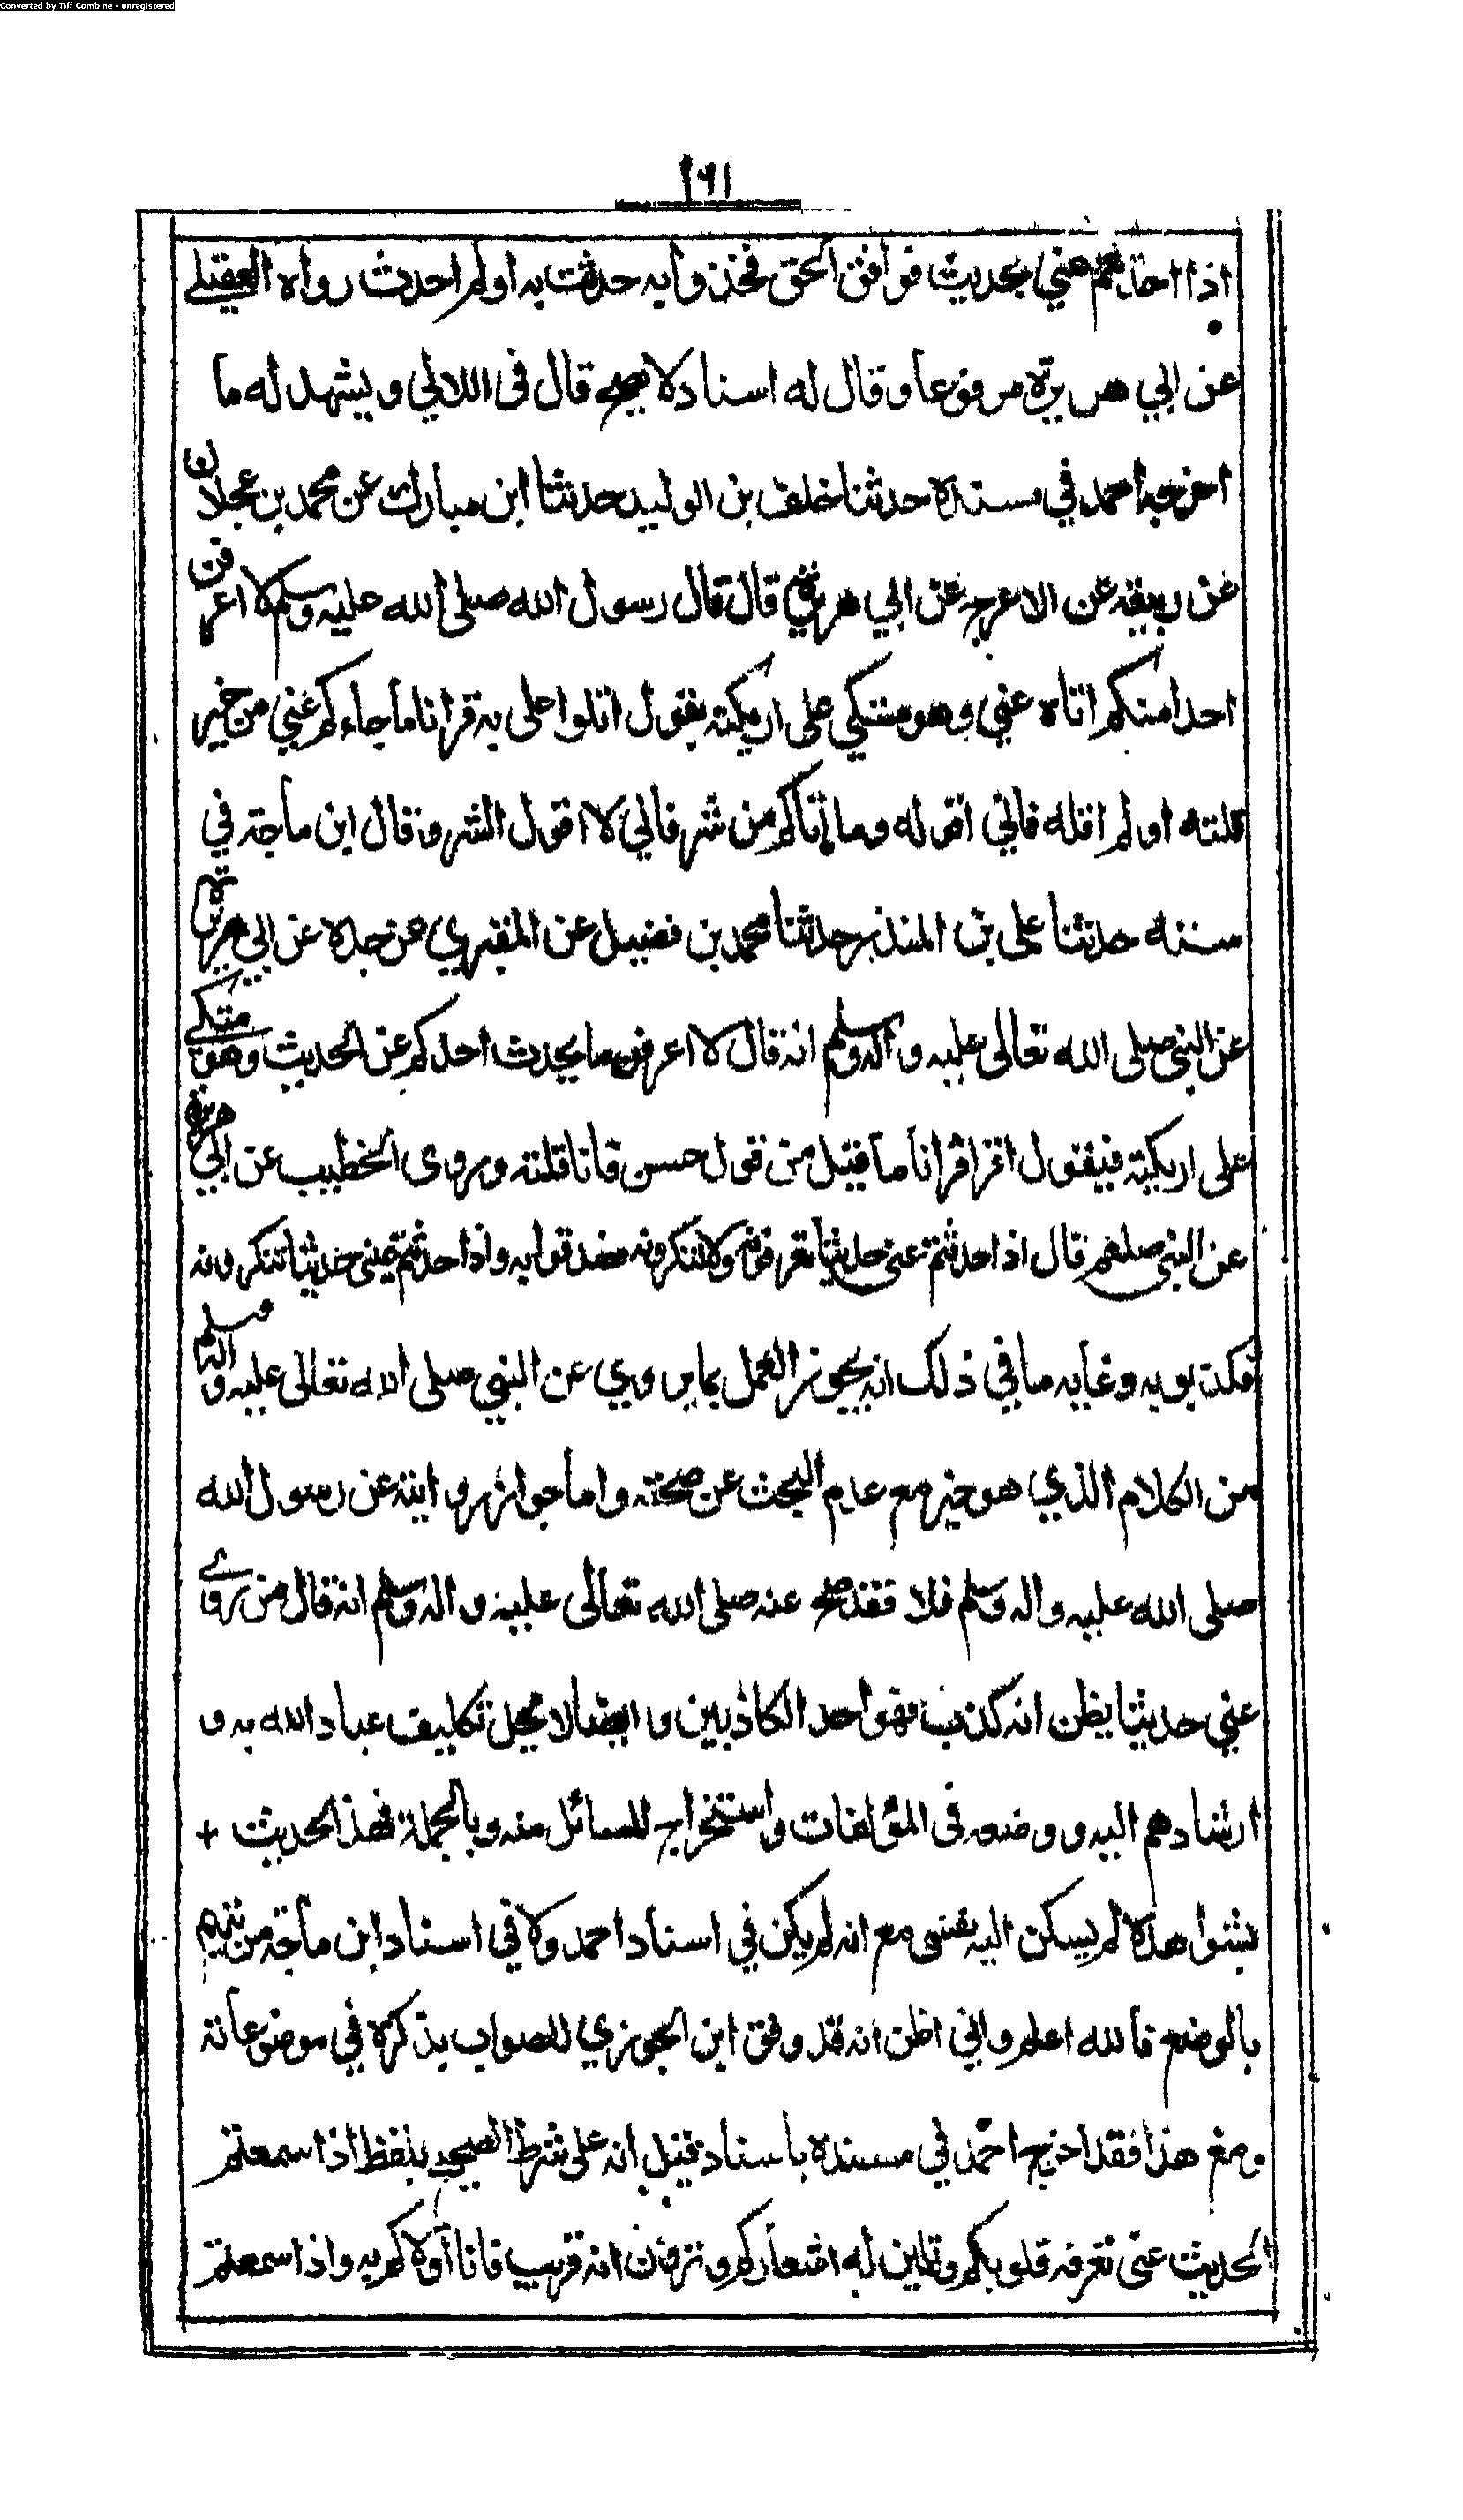 Converted by Tiff Combine - unregistered
١٩١
اذا احدثتم عني بحديث فوافق الحق فخذوا به حدثت به او لم احدث رواه العقيلي
عن ابي هريرة مرفوعا وقال له اسناد لا يصح قال في اللالي ويشهد له ما
اخرجه احمد في مسنده حدثنا خلف بن الوليد حدثنا ابن مبارك عن محمد بن عجلان
عن ربيعه عن الاعرج عن ابي هريرة قال قال رسول الله صلى الله عليه وسلم لا اعرفن
احدا منكم اتاه عني وهو متكي على اريكته يقول اتلوا على به قرانا ما جاءكم عني من خير
قلته او لم اقله فاني اقوله وما اتاكم من شر فاني لا اقول الشر وقال ابن ماجة في
سننه حدثنا على بن المنذر حدثنا محمد بن فضيل عن المقبري عن جده عن ابي هريرة
عن النبي صلى الله تعالى عليه واله وسلم انه قال لا اعرفن ما يحدث احدكم عن الحديث وهو متكي
على اريكته فيقول اقرا قرانا ما قيل من قول حسن فانا قلته وروى الخطيب عن ابي هريرة
عن النبي صلعم قال اذا حدثتم عني حديثا تعرفونه ولا تنكرونه فصدقوا به واذا حدثتم عني حديثا تنكرونه
فكذبوا به وغايه ما في ذلك انه يجوز العمل بما يروي عن النبي صلى الله تعالى عليه واله وسلم
من الكلام الذي هو خير مع عدم البحث عن صحته واما جواز روايته عن رسول الله
صلى الله عليه واله وسلم فلا فقد صح عنه صلى الله تعالى عليه واله وسلم انه قال من روى
عني حديثا يظن انه كذب فهو احد الكاذبين وايضا لا يحل تكليف عباد الله به و
ارشادهم اليه ووضعه في المؤلفات واستخراج المسائل منه وبالجملة فهذا الحديث +
بشواهده لم يسكن اليه نفسى مع انه لم يكن في اسناد احمد ولا في اسناد ابن ماجة من يتهم
بالوضع فالله اعلم واني اظن انه قد وفق ابن الجوزي للصواب بذكره في موضوعاته
ومع هذا فقد اخرج احمد في مسنده باسناد قيل انه على شرط الصحيح بلفظ اذا سمعتم
الحديث عنى تعرفه قلوبكم وتلين له اشعاركم وترون انه قريب فانا اولاكم به واذا سمعتم